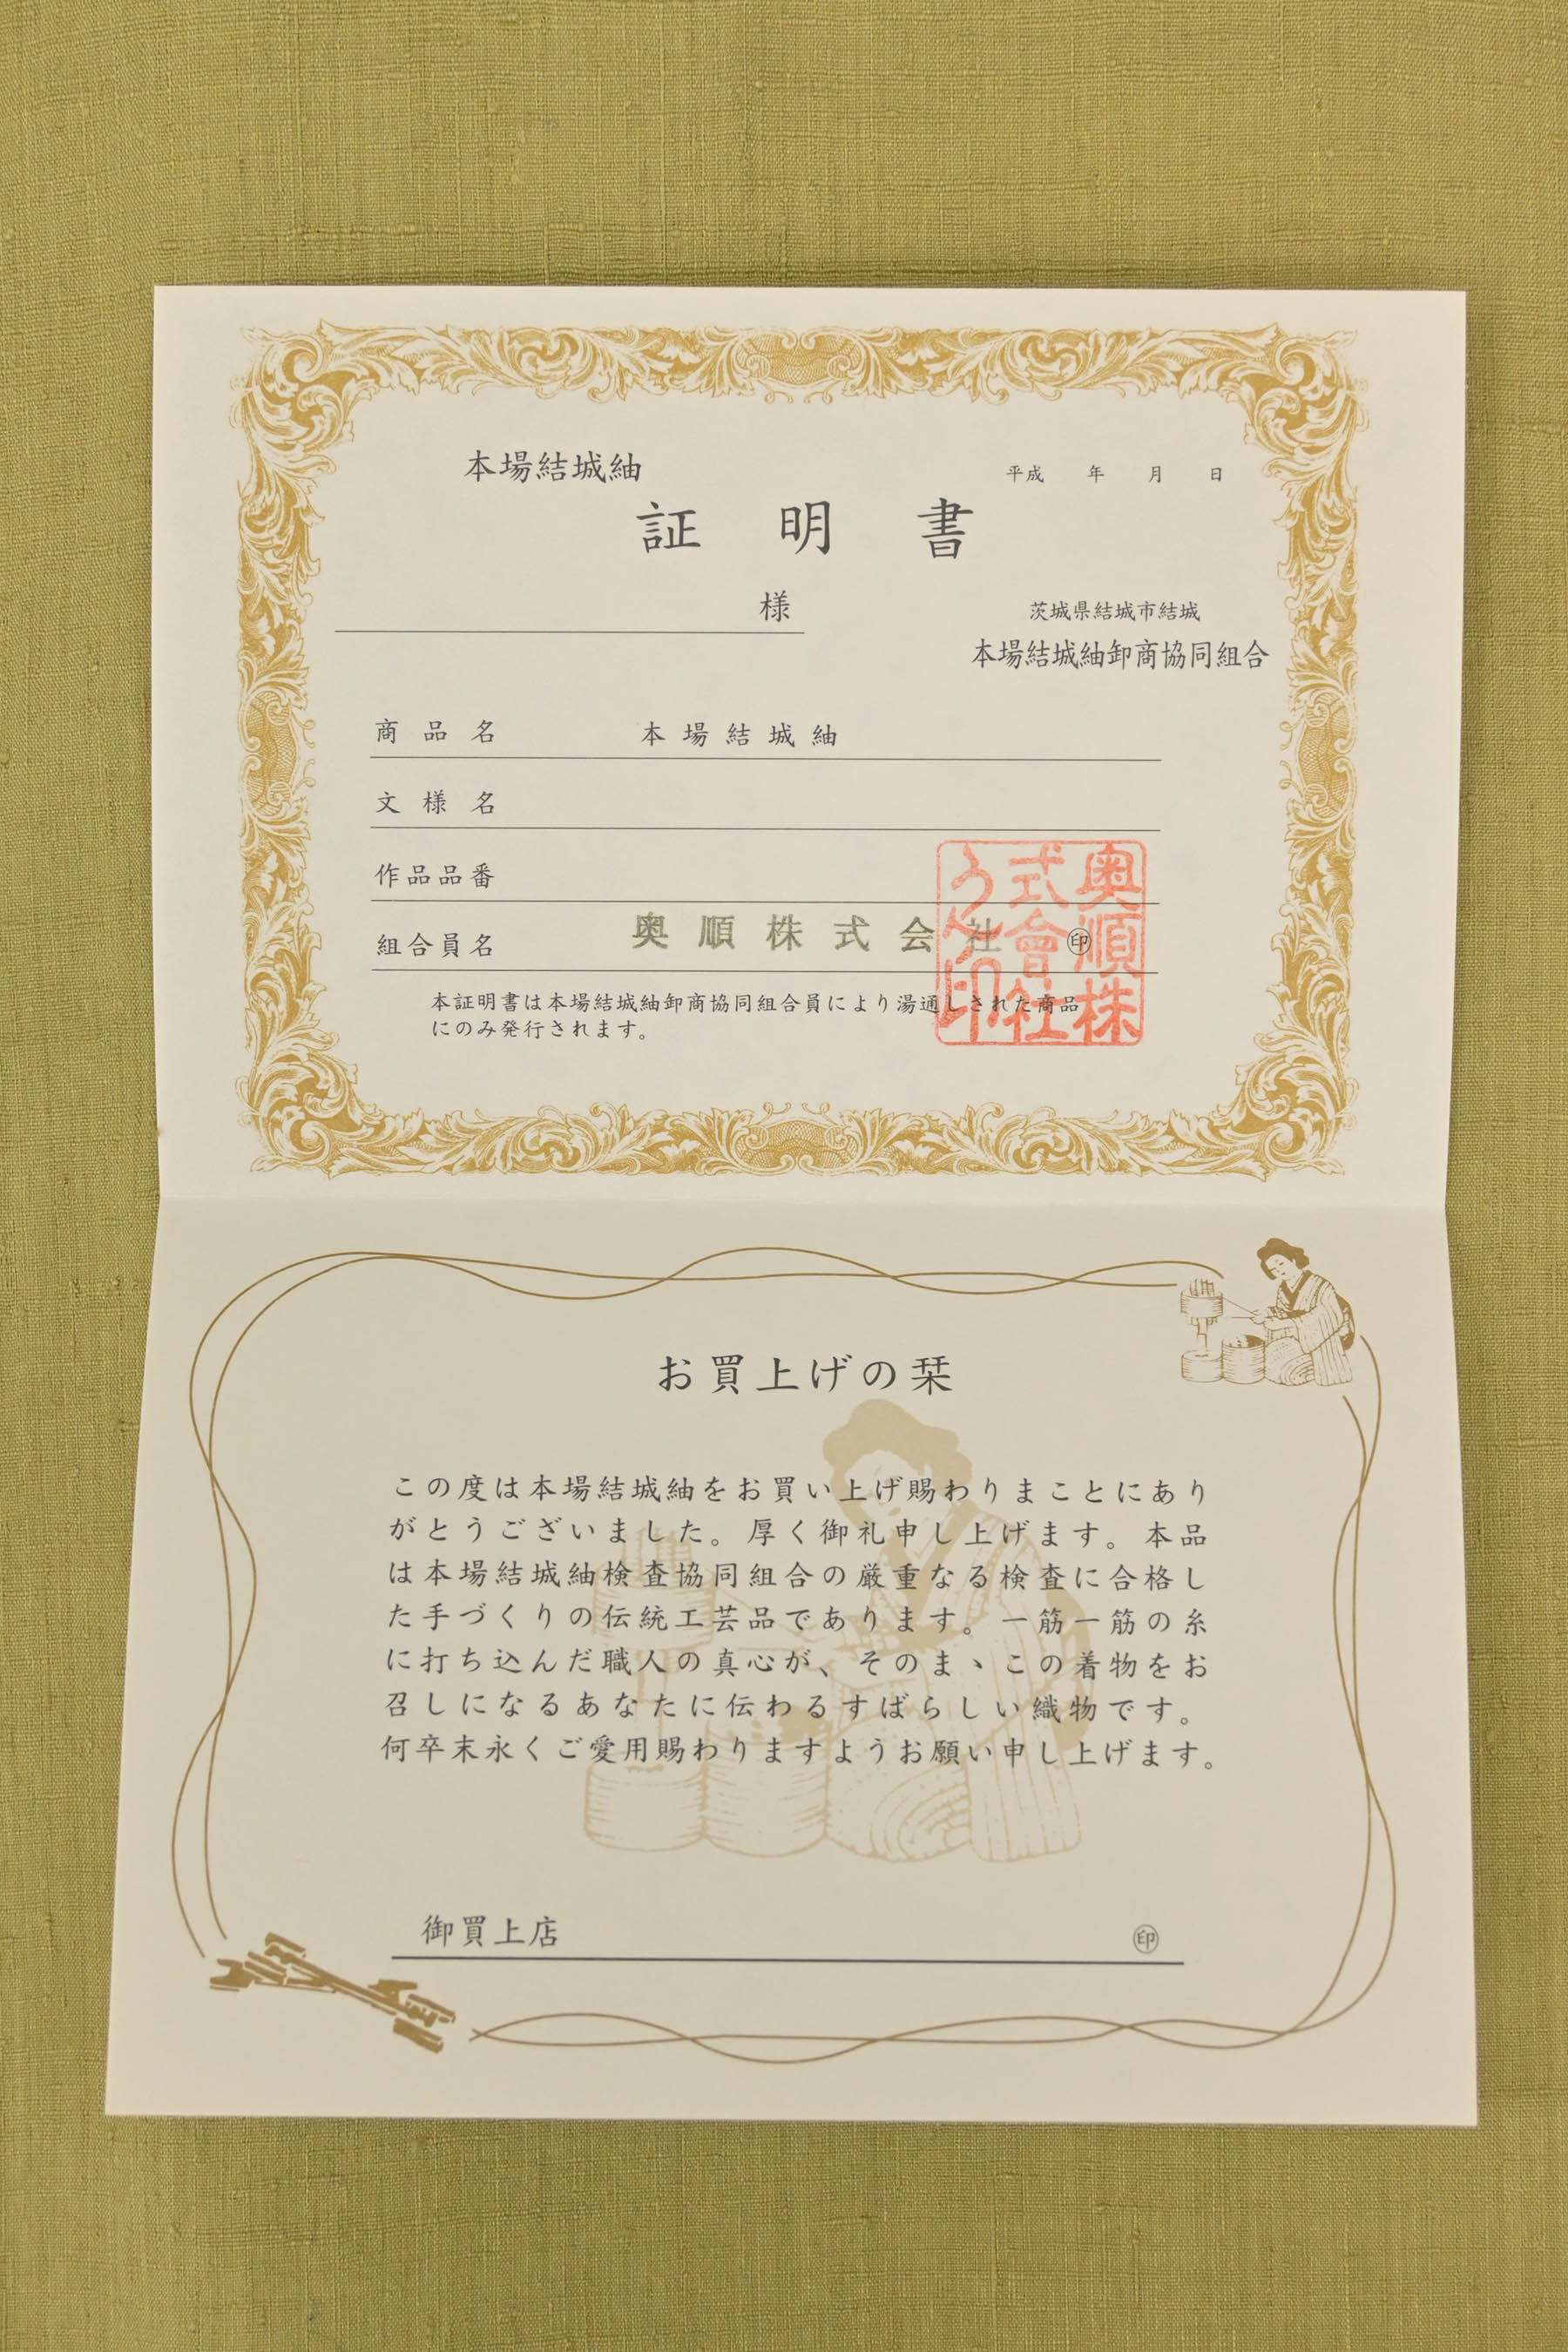 本場結城紬
平成 年 月 日
証明書
様
茨城県結城市結城
本場結城紬卸商協同組合
商品名 本場結城紬
文様名
作品品番
組合員名 奥順株式会社 ㊞
奥順株
式會社
本証明書は本場結城紬卸商協同組合員により湯通しされた商品
にのみ発行されます。
お買上げの栞
この度は本場結城紬をお買い上げ賜わりまことにあり
がとうございました。厚く御礼申し上げます。本品
は本場結城紬検査協同組合の厳重なる検査に合格し
た手づくりの伝統工芸品であります。一筋一筋の糸
に打ち込んだ職人の真心が、そのまゝこの着物をお
召しになるあなたに伝わるすばらしい織物です。
何卒末永くご愛用賜わりますようお願い申し上げます。
御買上店 ㊞